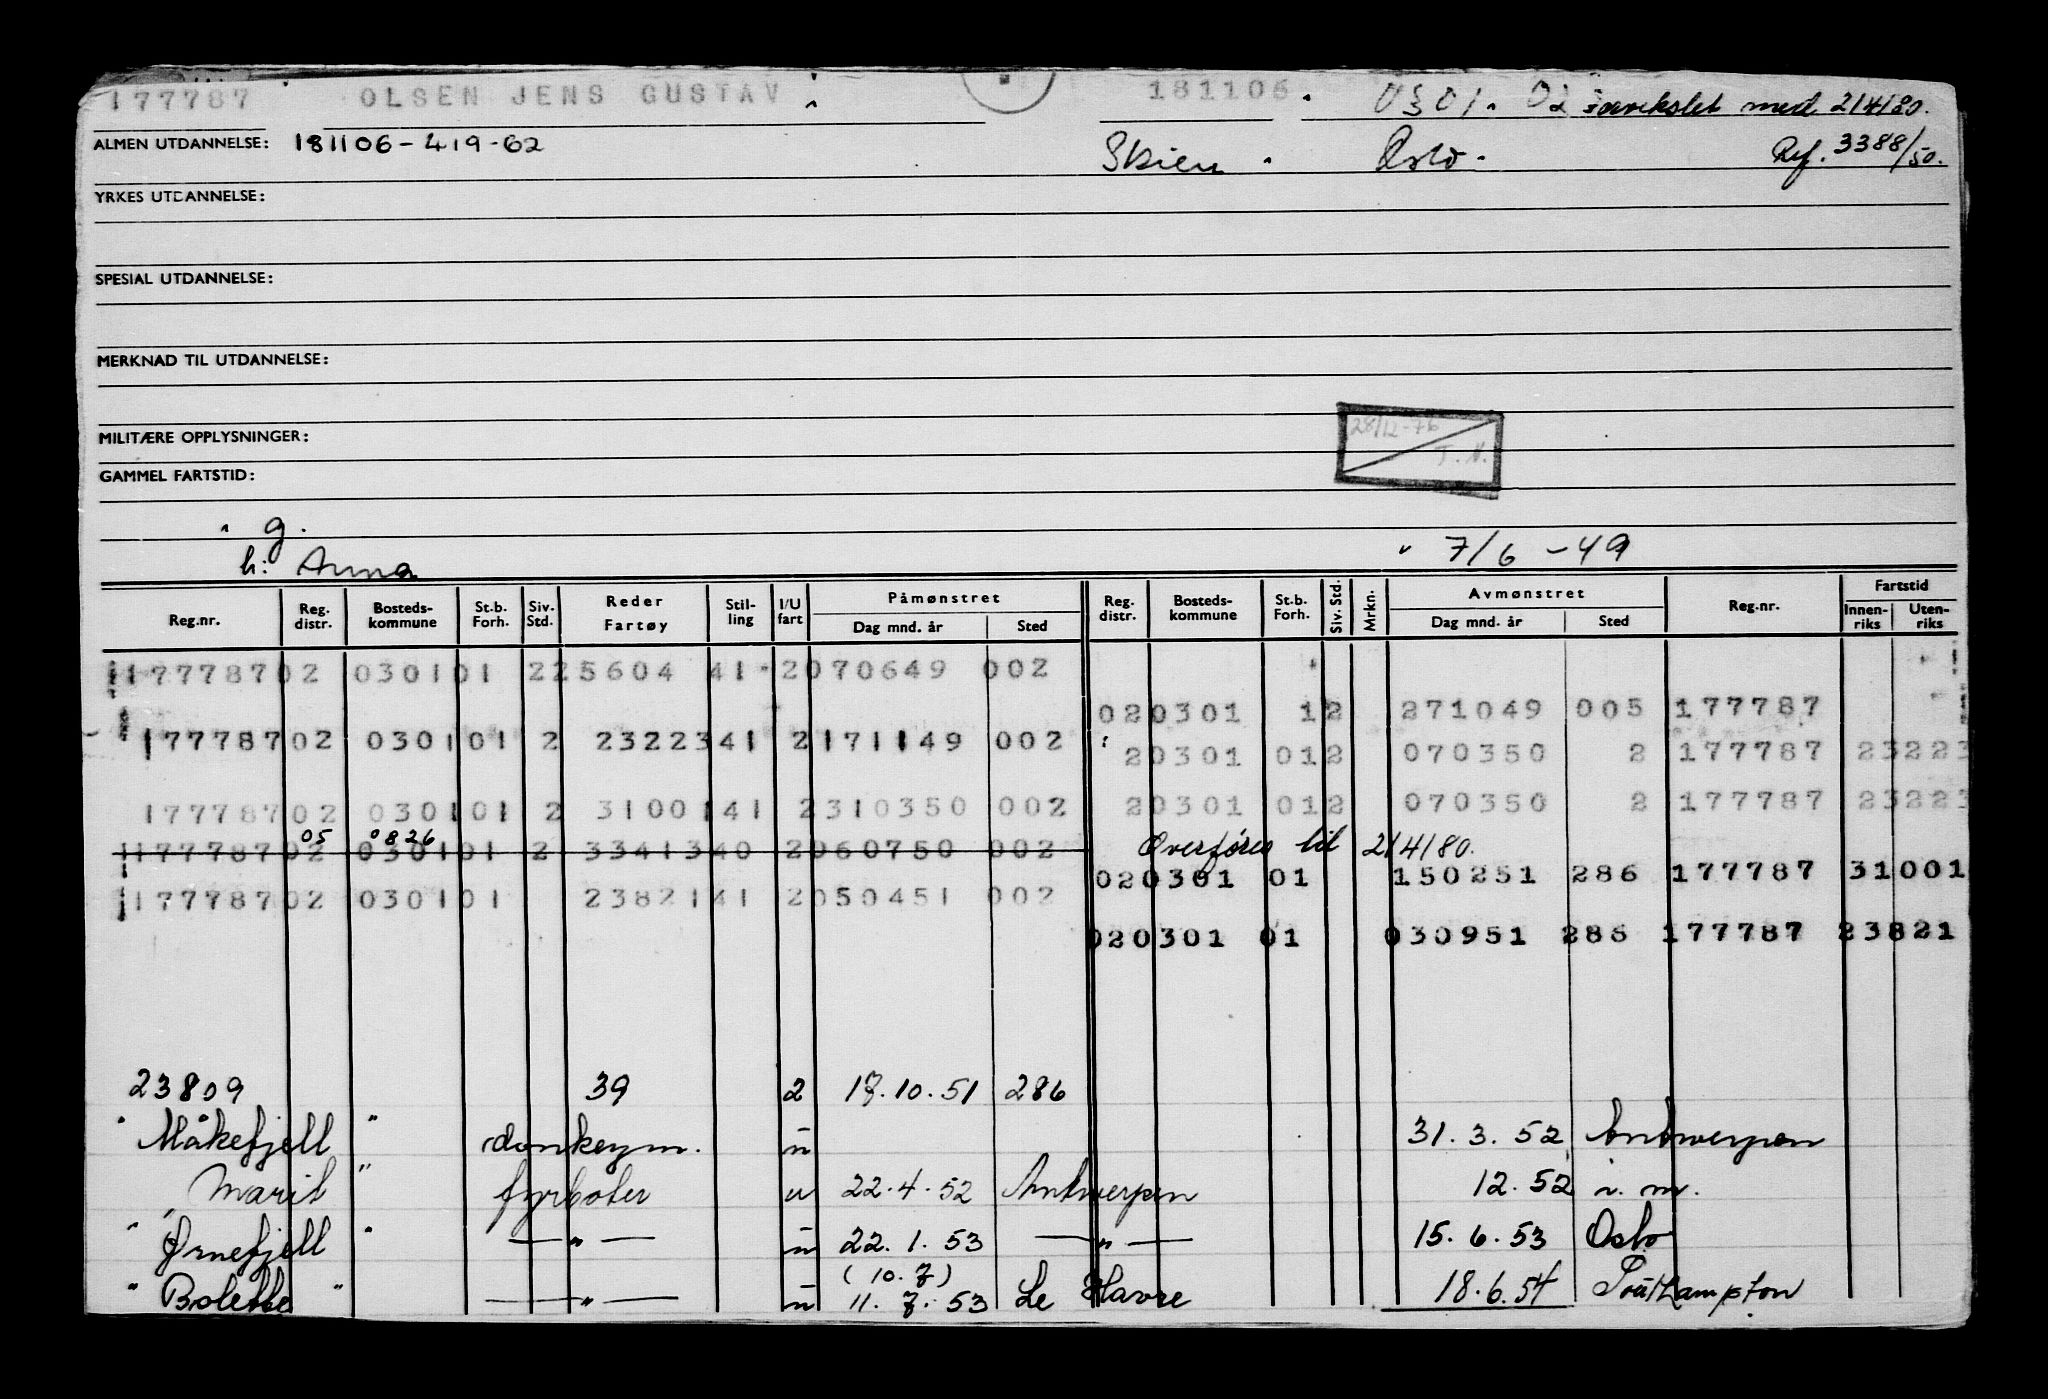 177787 OLSEN JENS GUSTAV 181106 0301. 02 med 214180.
ALMEN UTDANNELSE: 181106-419-62 Skien Oslo. Ref. 3388/50.
YRKES UTDANNELSE:
SPESIAL UTDANNELSE:
MERKNAD TIL UTDANNELSE:
28/12-76
T. N.
MILITÆRE OPPLYSNINGER:
GAMMEL FARTSTID:
" g.
h: Anna " 7/6 - 49
Reg.nr. Reg. distr. Bosteds-kommune St.b. Forh. Siv. Std. Reder Fartøy Stil-ling I/U fart Påmønstret Dag mnd. år Sted Reg. distr. Bosteds-kommune St.b. Forh. Siv. Std. Mrkn. Avmønstret Dag mnd. år Sted Reg.nr. Fartstid Innen-riks Uten-riks
17778702 030101 225604 41 2070649 002
020301 12 271049 005 177787
17778702 030101 2 2322341 2171149 002
20301 012 070350 2 177787 23223
17778702 030101 2 3100141 2310350 002
20301 012 070350 2 177787 23223
05 0826
17778702 030101 2 3341340 2060750 002 Overføres til 214180.
020301 01 150251 286 177787 31001
17778702 030101 2382141 2050451 002
020301 01 030951 286 177787 23821
23809 39 2 17.10.51 286
" Måkefjell " donkeym. u 31.3.52 Antwerpen
Marit " fyrbøter u 22.4.52 Antwerpen 12.52 i.m.
" Ørnefjell " — " — u 22.1.53 — " — 15.6.53 Oslo
(10.7)
" Bolette " — " — u 11.7.53 Le Havre 18.6.54 Southampton